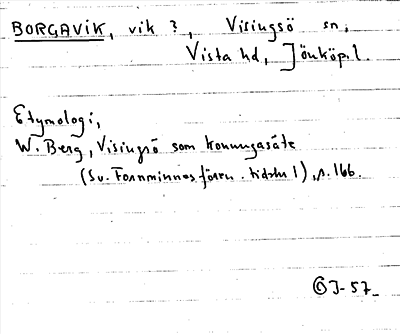 BORGAVIK, vik ?, Visingsö sn,
Vista hd, Jönköp.l.
Etymologi,
W. Berg, Visingsö som konungasäte
(Sv. Fornminnesfören. tidskr 1), s. 166.
J-57